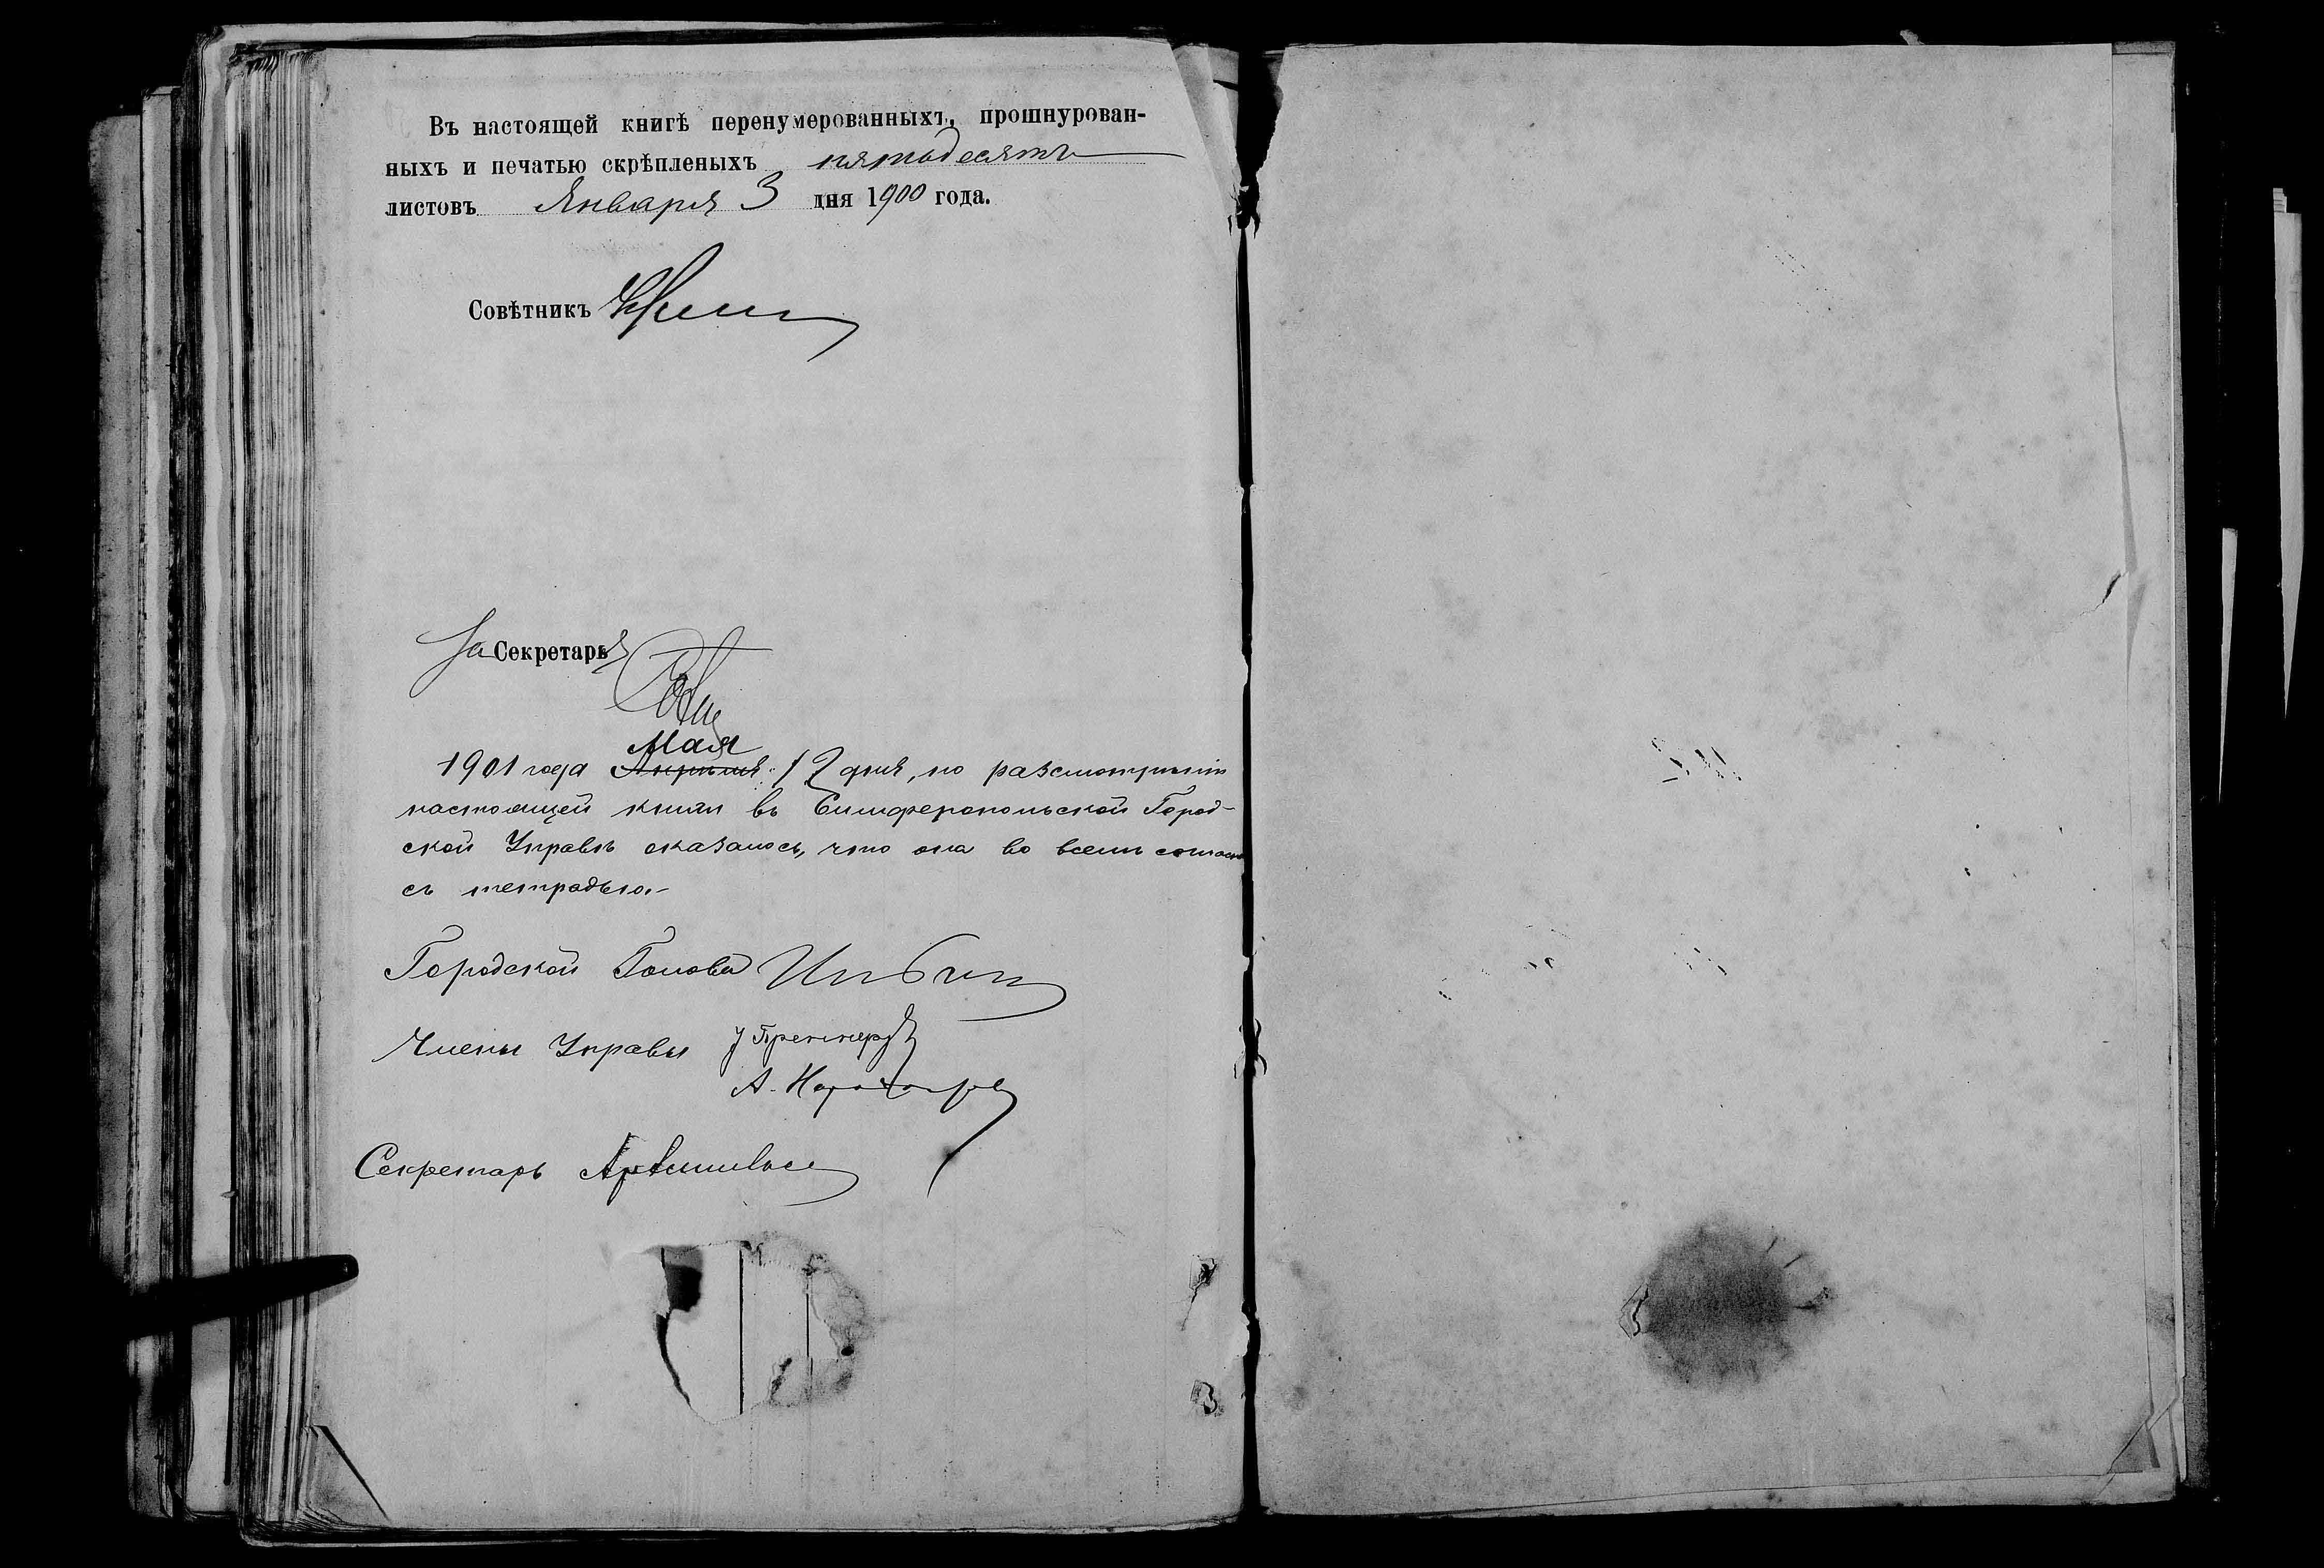 Въ настоящей книгѣ перенумерованныхъ, прошнурован-
ныхъ и печатью скрѣпленыхъ пятьдесятъ
листовъ Января 3 дня 1900 года.
Совѣтникъ
За Секретаря
Мая
1901 года Апрѣля 12 дня, по разсмотрѣніи
настоящей книги въ Симферопольской Город-
ской Управѣ оказалось, что она во всемъ согласна
съ тетрадью.
Городской Голова
Члены Управы
Секретарь